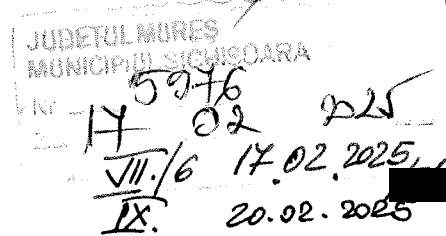 JUDEȚUL MUREȘ
MUNICIPIUL SIGHIȘOARA
Nr. 5976
17 02 2025
VII./6 17.02.2025
IX. 20.02.2025